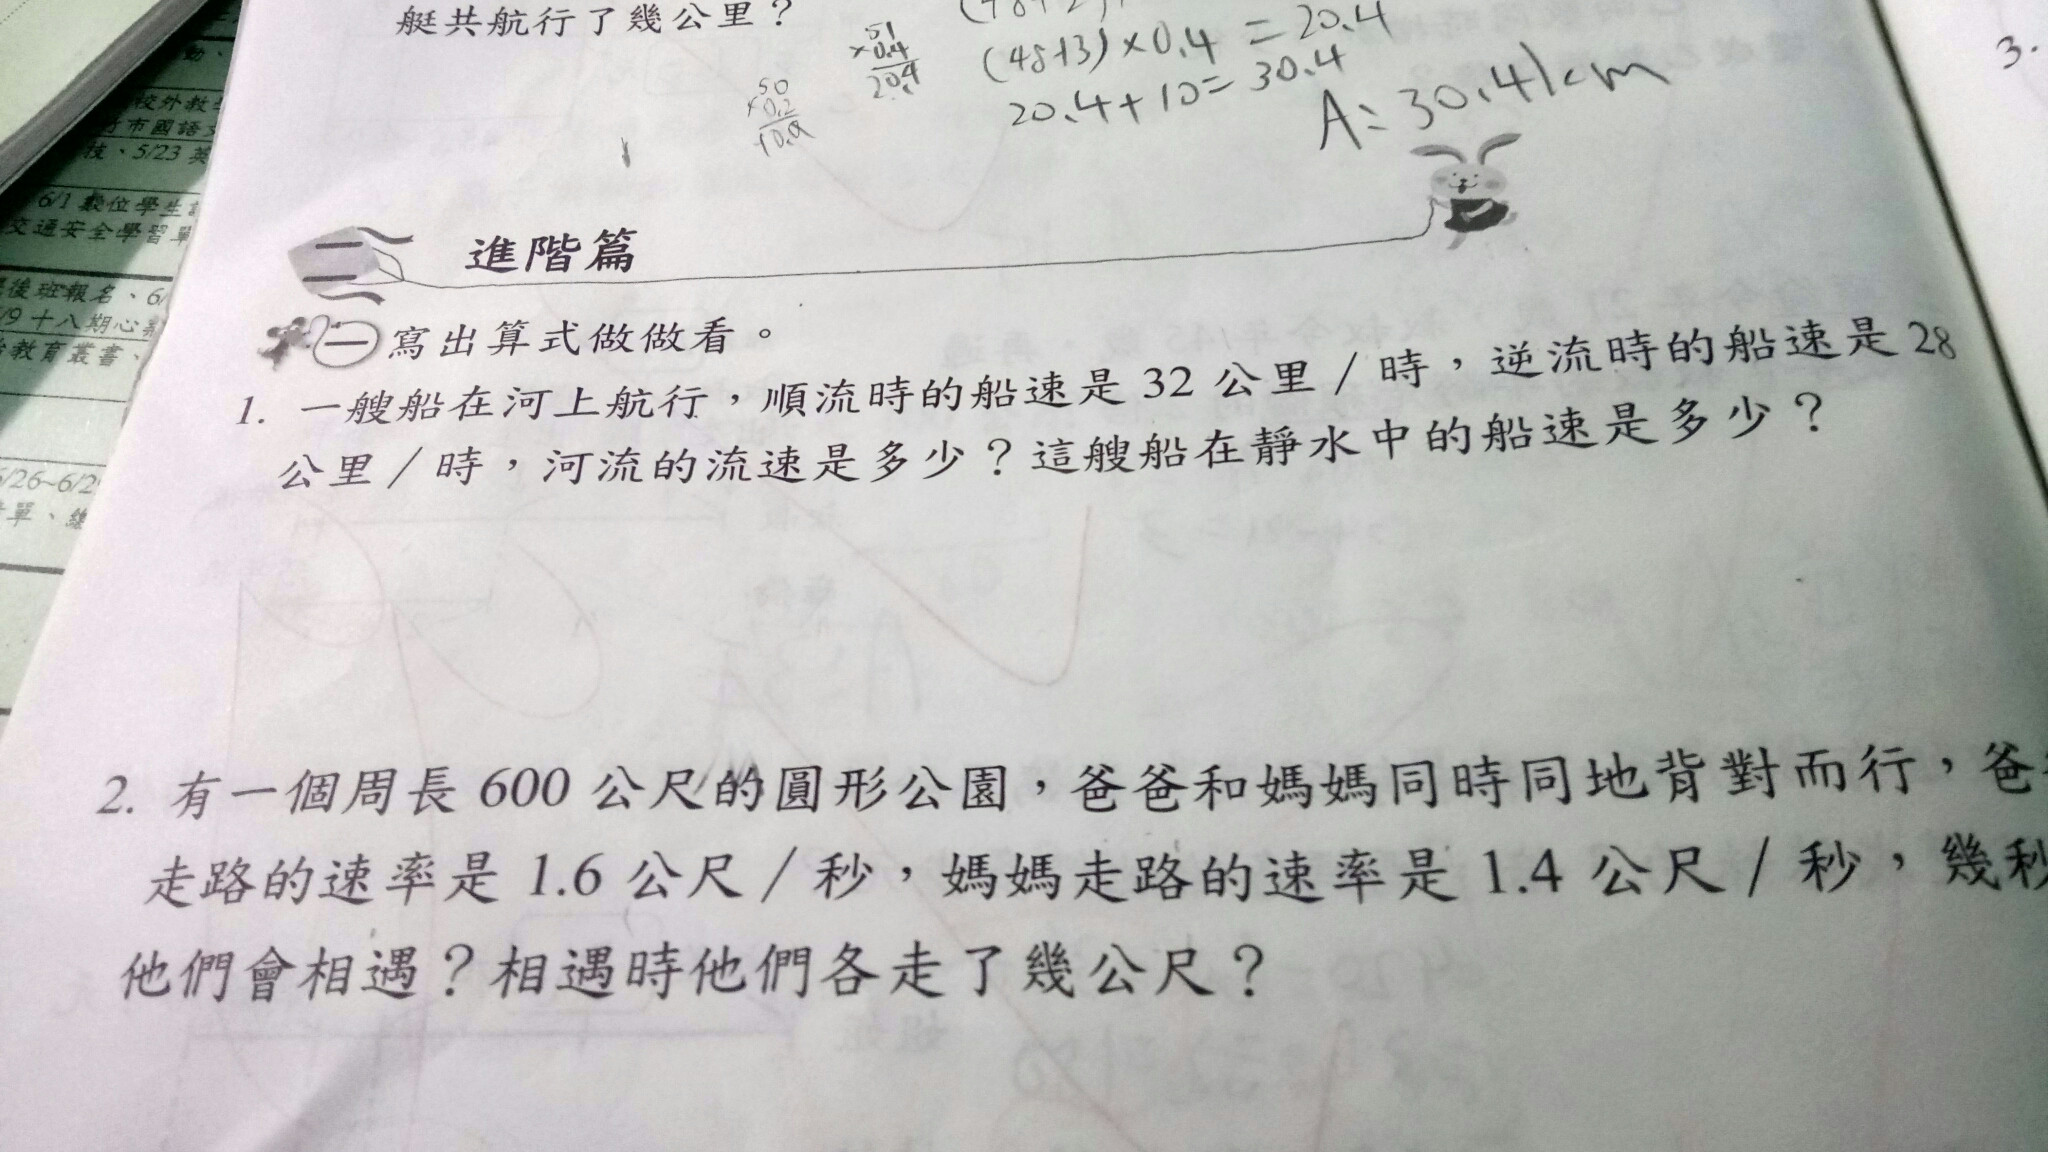 艇共航行了幾公里？
51
×0.4
20.4
50
×0.2
10.0
(48+3)×0.4=20.4
20.4+10=30.4
A:30.4km
3.
進階篇
一 寫出算式做做看。
1. 一艘船在河上航行，順流時的船速是 32 公里/時，逆流時的船速是 28
公里/時，河流的流速是多少？這艘船在靜水中的船速是多少？
2. 有一個周長 600 公尺的圓形公園，爸爸和媽媽同時同地背對而行，爸
走路的速率是 1.6 公尺/秒，媽媽走路的速率是 1.4 公尺/秒，幾秒
他們會相遇？相遇時他們各走了幾公尺？
動、
校外教
市國語
技、5/23 英
6/1 數位學生
交通安全學習單
後班報名、6/
/9 十八期心
教育叢書、
6/26~6/2
單、